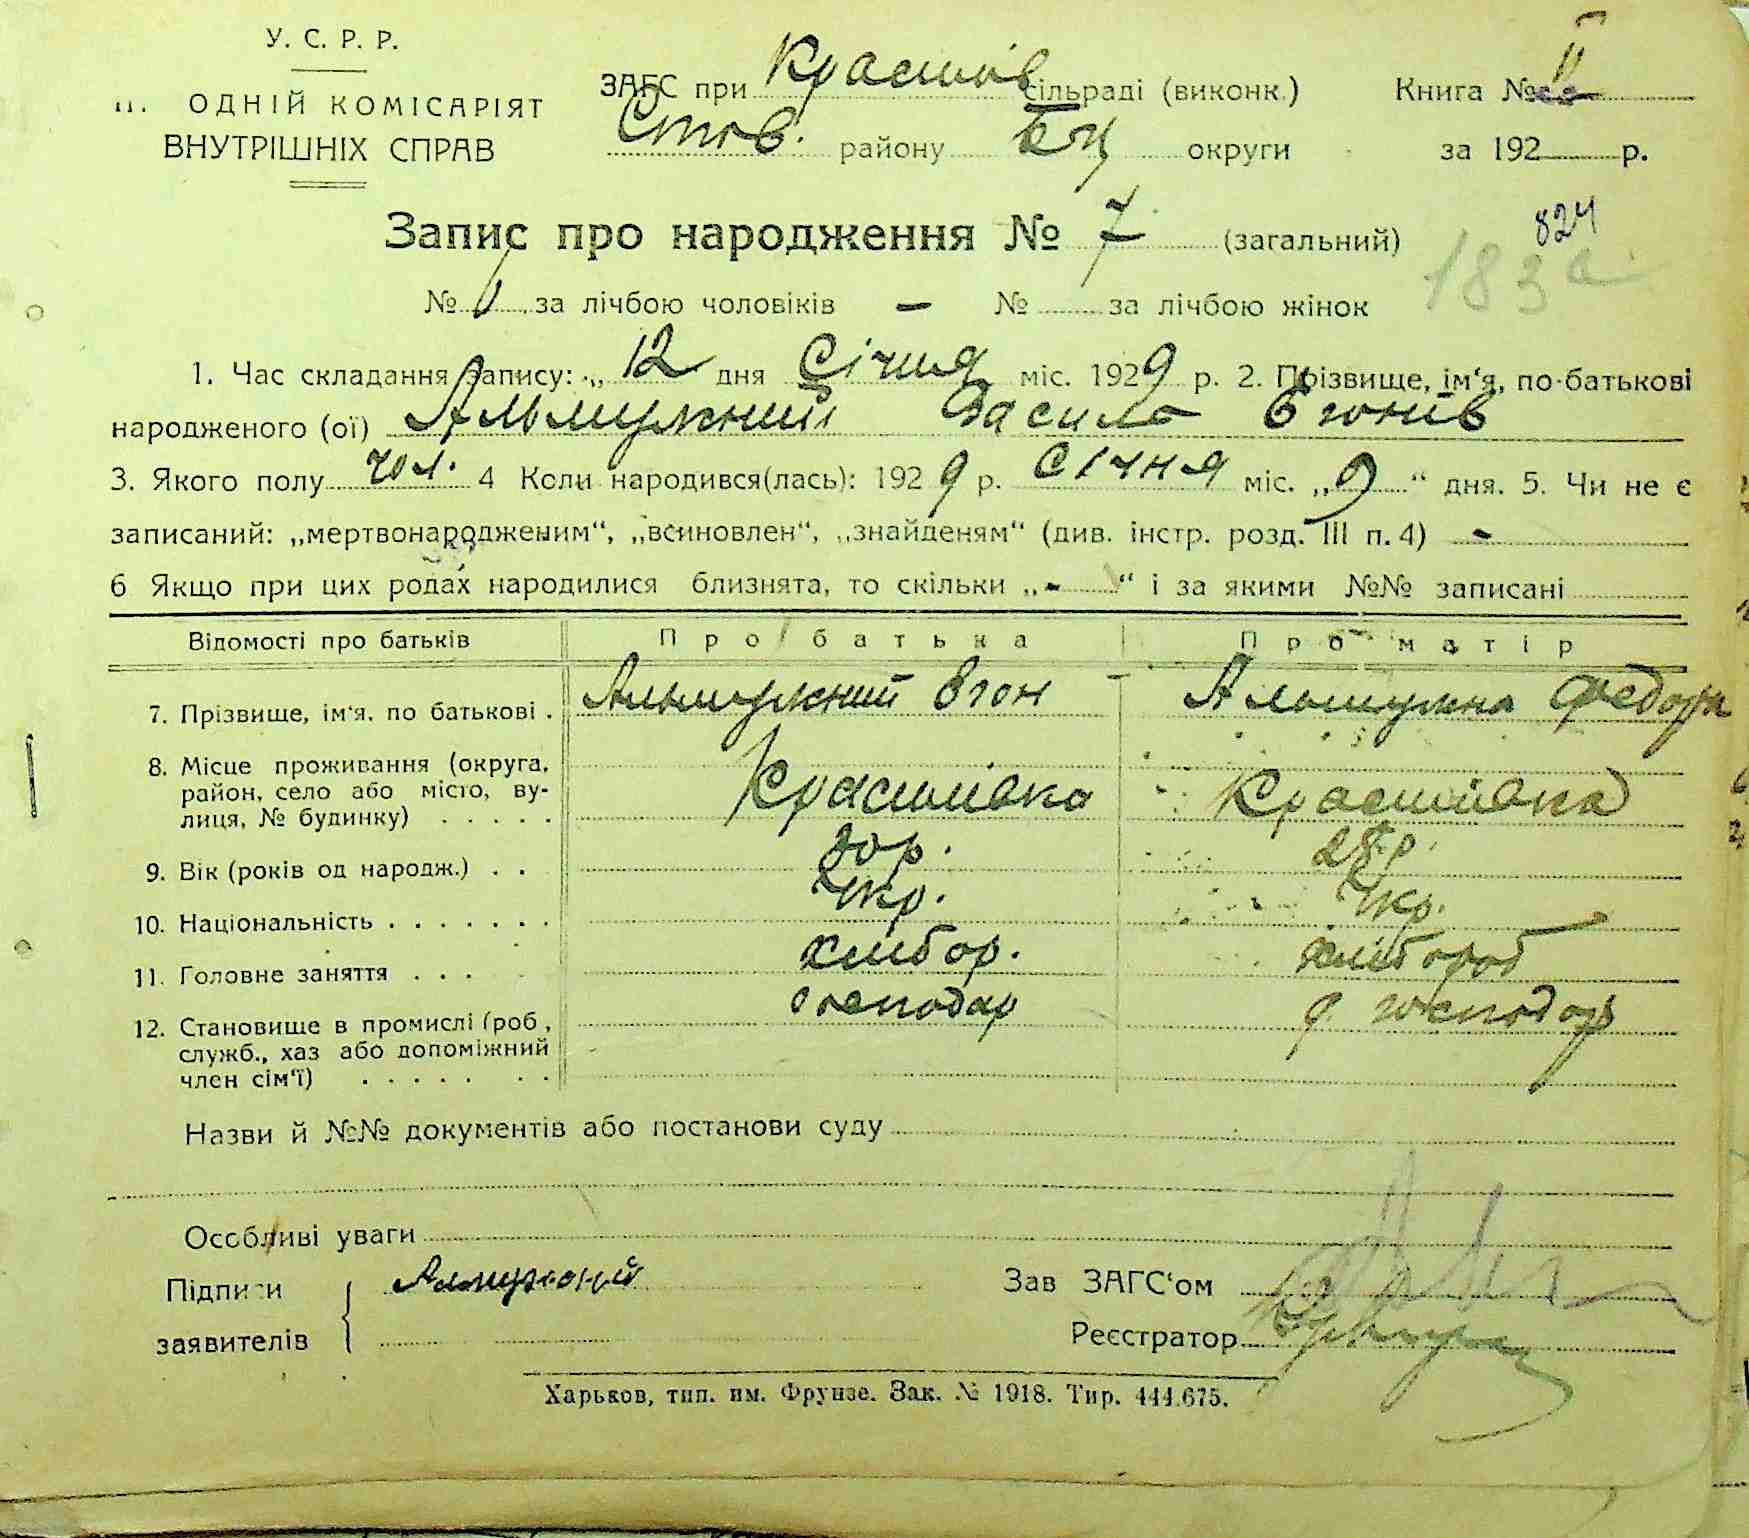 У. С. Р. Р.
ОДНІЙ КОМІСАРІЯТ
ВНУТРІШНІХ СПРАВ
ЗАГС при Красилів сільраді (виконк.)
Став. району БЦ округи
Книга № II
за 192 р.
Запис про народження № 7 (загальний)
824
183а
№ за лічбою чоловіків – № за лічбою жінок
1. Час складання запису: „ 12 дня Січня міс. 1929 р. 2. Прізвище, ім‘я, по-батькові
народженого (ої) Альмужний Василь Вгонів
3. Якого полу чол. 4 Коли народився(лась): 1929 р. Січня міс. „9“ дня. 5. Чи не є
записаний: „мертвонародженим“, „всиновлен“, „знайденям“ (див. інстр. розд. III п. 4) -
6 Якщо при цих родах народилися близнята, то скільки „-“ і за якими №№ записані
Відомості про батьків Про батька Про матір
7. Прізвище, ім‘я, по батькові . Альмужний Вгон Альмужна Федора
8. Місце проживання (округа,
район, село або місто, ву-
лиця, № будинку) . . . . . Красилівка Красилівка
9. Вік (років од народж.) . . 30 р. 28 р.
10. Національність . . . . . . . Укр. Укр.
11. Головне заняття . . . хлібор. хлібороб
12. Становище в промислі (роб., господар господар
служб., хаз або допоміжний
член сім‘ї) . . . . . . .
Назви й №№ документів або постанови суду
Особливі уваги
Підписи
заявителів
Алмужний
Зав ЗАГС‘ом
Реєстратор
Харьков, тип. им. Фрунзе. Зак. № 1918. Тир. 444.675.